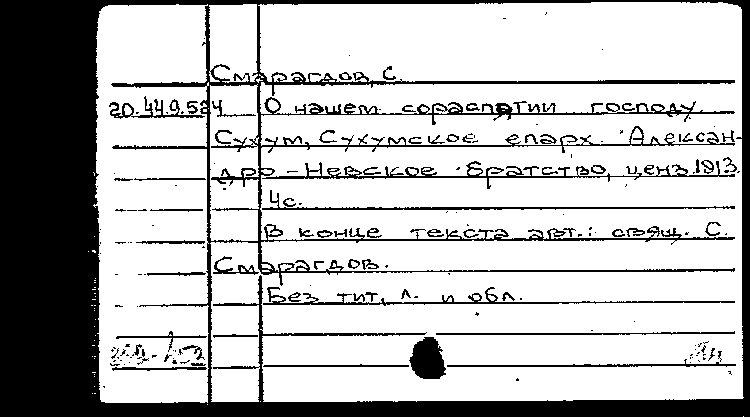 Смарагдов, С.
20.449.524 О нашем сораспятии господу.
Сухум, Сухумское епарх. Алексан-
дро-Невское братство, ценз. 1913.
4с.
В конце текста авт.: свящ. С.
Смарагдов.
Без тит. л. и обл.